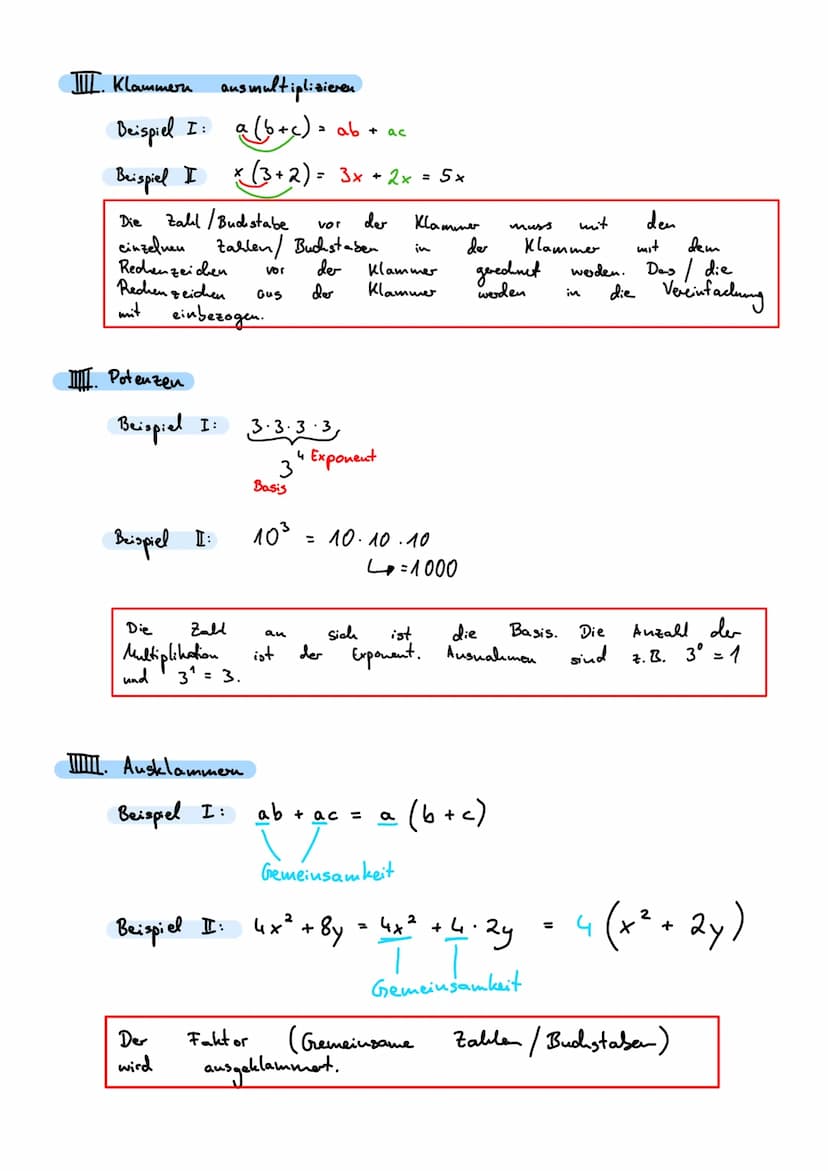 IIII. Klammern ausmultiplizieren
Beispiel I: a(b+c) = ab + ac
Beispiel II x(3+2) = 3x + 2x = 5x
Die Zahl/Buchstabe vor der Klammer muss mit den
einzelnen Zahlen/Buchstaben in der Klammer mit dem
Rechenzeichen vor der Klammer gerechnet werden. Das/die
Rechenzeichen aus der Klammer werden in die Vereinfachung
mit einbezogen.
IIIII. Potenzen
Beispiel I: 3·3·3·3
3⁴ Exponent
Basis
Beispiel II: 10³ = 10·10·10
↳ =1000
Die Zahl an sich ist die Basis. Die Anzahl der
Multiplikation ist der Exponent. Ausnahmen sind z.B. 3⁰ = 1
und 3¹ = 3.
IIIIII. Ausklammern
Beispiel I: ab + ac = a (b+c)
Gemeinsamkeit
Beispiel II: 4x² + 8y = 4x² + 4·2y = 4 (x² + 2y)
Gemeinsamkeit
Der Faktor (Gemeinsame Zahlen/Buchstaben)
wird ausgeklammert.